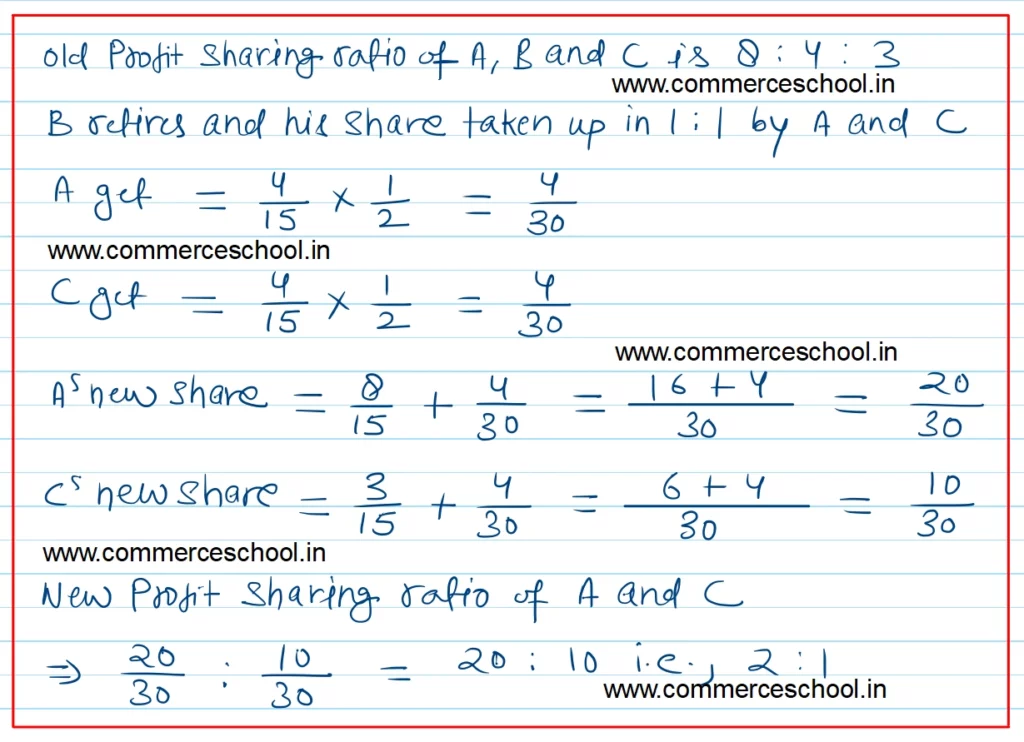 old Profit sharing ratio of A, B and C is 8 : 4 : 3
www.commerceschool.in
B retires and his share taken up in 1 : 1 by A and C
A get = 4/15 × 1/2 = 4/30
www.commerceschool.in
C get = 4/15 × 1/2 = 4/30
www.commerceschool.in
A's new share = 8/15 + 4/30 = 16 + 4/30 = 20/30
C's new share = 3/15 + 4/30 = 6 + 4/30 = 10/30
www.commerceschool.in
New Profit sharing ratio of A and C
⇒ 20/30 : 10/30 = 20 : 10 i.e., 2 : 1
www.commerceschool.in